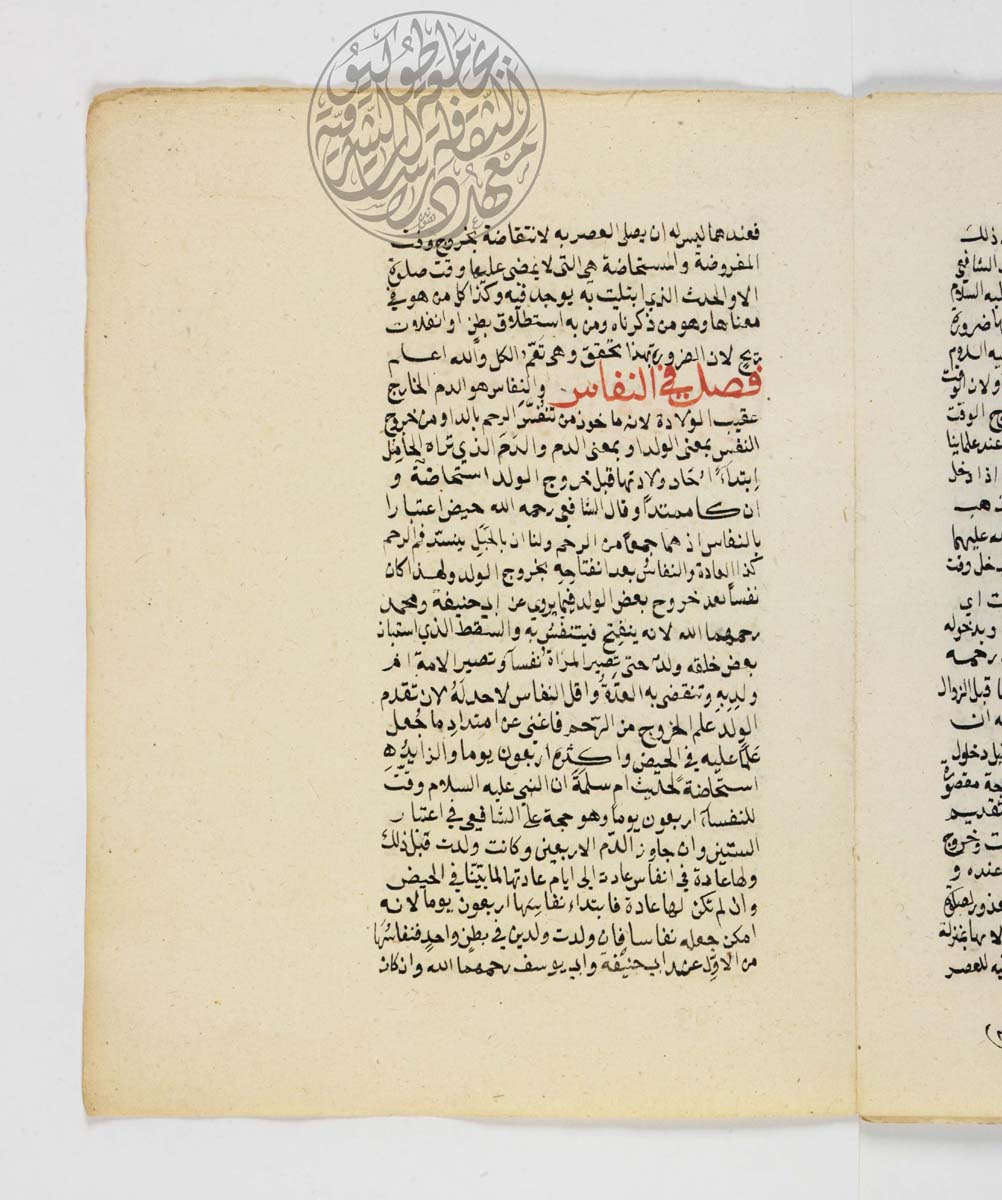 فعندهما ليس له ان يصلى العصر به لانتقاضة بخروج وقت
المفروضة والمستحاضة هي التى لا يمضى عليها وقت صلوة
الا والحدث الذى ابتليت به يوجد فيه وكذا كل من هو في
معناها وهو من ذكرناه ومن به استطلاق بطن او انفلات
ريح لان الضرورة بهذا تحقق وهى تعم الكل والله اعلم
فصل في النفاس والنفاس هو الدم الخارج
عقيب الولادة لانه ماخوذ من تنفس الرحم بالد او من خروج
النفس بمعنى الولد او بمعنى الدم والدم الذي تراه الحامل
ابتداءً او حاد ولادتها قبل خروج الولد استحاضة و
ان كا ممتداً وقال الشافعى رحمه الله حيض اعتبارا
بالنفاس اذ هما جمعاً من الرحم ولنا ان بالحبل ينسد فم الرحم
كذا العادة والنفاس بعد انفتاحه بخروج الولد ولهذا كان
نفساً بعد خروج بعض الولد فيما يروى عن ابي حنيفة ومحمد
رحمهما الله لانه ينفتح فيتنفس به والسقط الذي استبان
بعض خلقه ولد حتى تصير المراة نفسآ وتصير الامة ام
ولد به وتنقضى به العدة واقل النفاس لا حد له لان تقدم
الولد علم الخروج من الرحم فاغنى عن امتداد ما جعل
علما عليه في الحيض واكثره اربعون يوما والزايد
استحاضة لحديث ام سلمة ان النبى عليه السلام وقت
للنفسآء اربعون يوما وهو حجة على الشافعي في اعتبار
الستين وان جاوز الدم الاربعين وكانت ولدت قبل ذلك
ولها عادة في انفاس عادت الى ايام عادتها لما بيّنا في الحيض
وان لم تكن لها عادة فابتداء نفاسها اربعون يوما لانه
امكن جعله نفاسا فان ولدت ولدين في بطن واحد فنفاسها
من الاول عند ابي حنيفة وابي يوسف رحمهما الله وان كان